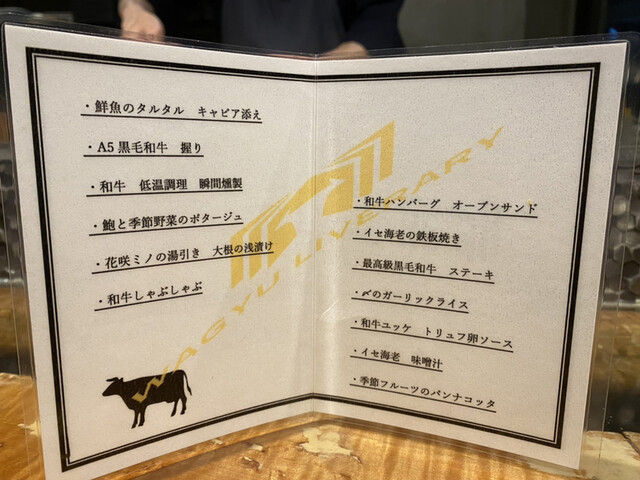 ・鮮魚のタルタル　キャビア添え
・A5黒毛和牛　握り
・和牛　低温調理　瞬間燻製
・鮑と季節野菜のポタージュ
・花咲ミノの湯引き　大根の浅漬け
・和牛しゃぶしゃぶ
・和牛ハンバーグ　オープンサンド
・イセ海老の鉄板焼き
・最高級黒毛和牛　ステーキ
・〆のガーリックライス
・和牛ユッケ　トリュフ卵ソース
・イセ海老　味噌汁
・季節フルーツのパンナコッタ
WAGYU LIVERARY